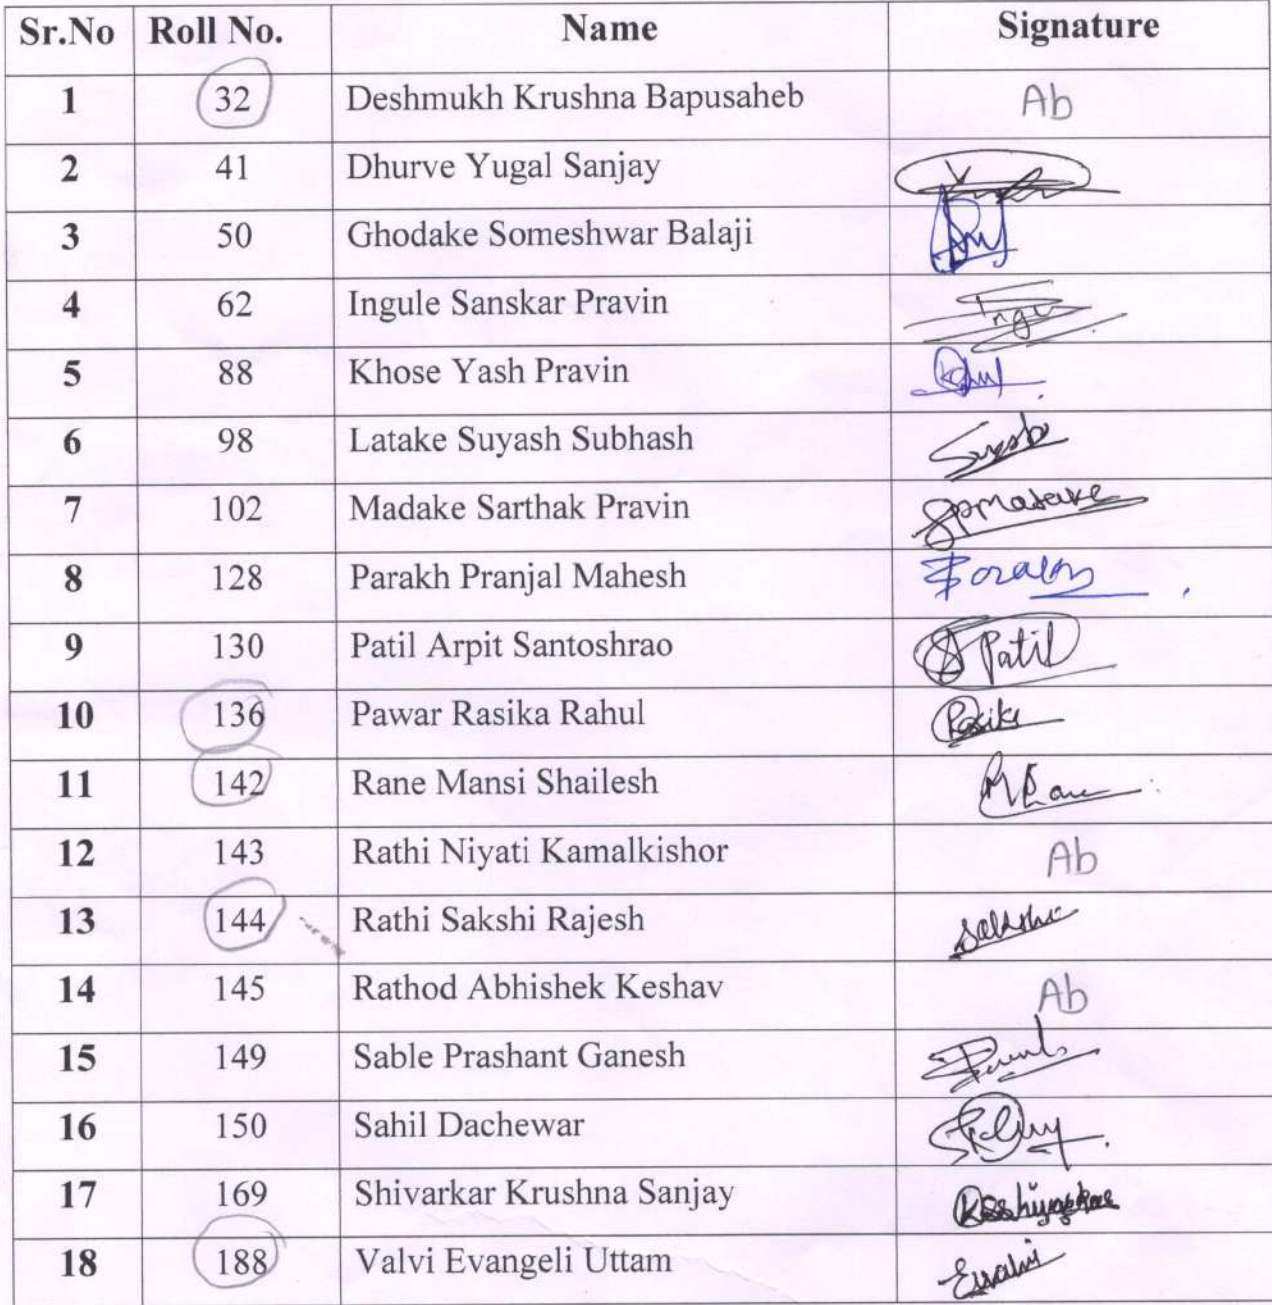 Sr.No Roll No. Name Signature
1 32 Deshmukh Krushna Bapusaheb Ab
2 41 Dhurve Yugal Sanjay
3 50 Ghodake Someshwar Balaji
4 62 Ingule Sanskar Pravin
5 88 Khose Yash Pravin
6 98 Latake Suyash Subhash
7 102 Madake Sarthak Pravin
8 128 Parakh Pranjal Mahesh
9 130 Patil Arpit Santoshrao Patil
10 136 Pawar Rasika Rahul
11 142 Rane Mansi Shailesh
12 143 Rathi Niyati Kamalkishor Ab
13 144 Rathi Sakshi Rajesh
14 145 Rathod Abhishek Keshav Ab
15 149 Sable Prashant Ganesh
16 150 Sahil Dachewar
17 169 Shivarkar Krushna Sanjay
18 188 Valvi Evangeli Uttam